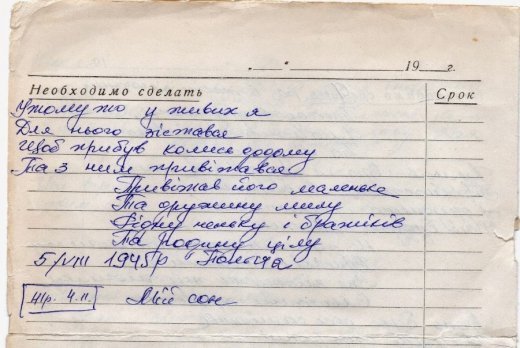 19 г.
Необходимо сделать Срок
Тому то у живих я
Для нього зістався
Щоб прибув колись додому
Та з ним привітався
Привітав його маленьке
Та дружину милу
Рідну неньку і братиків
Та родину цілу
5/VIII 1945р Польща
Мій сон